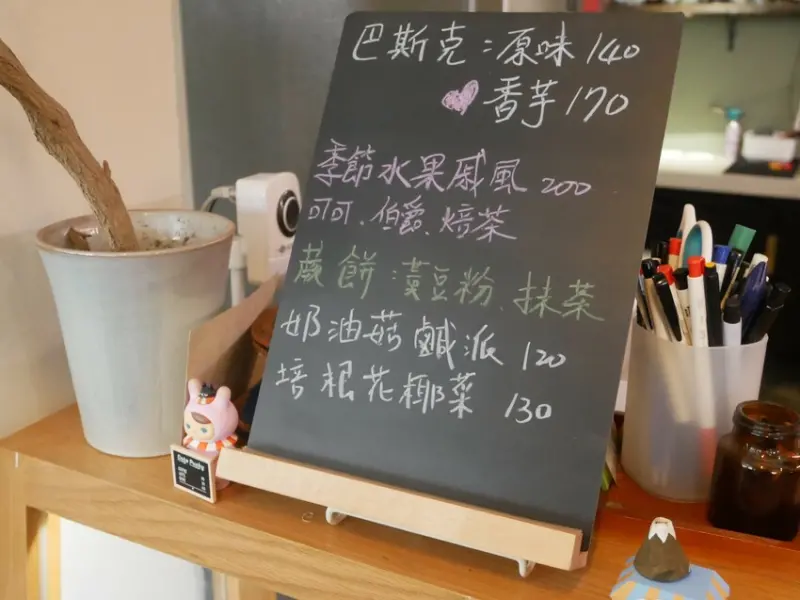 巴斯克:原味 140
香芋 170
季節水果戚風 200
可可、伯爵、焙茶
蕨餅:黃豆粉、抹茶
奶油菇鹹派 120
培根花椰菜 130